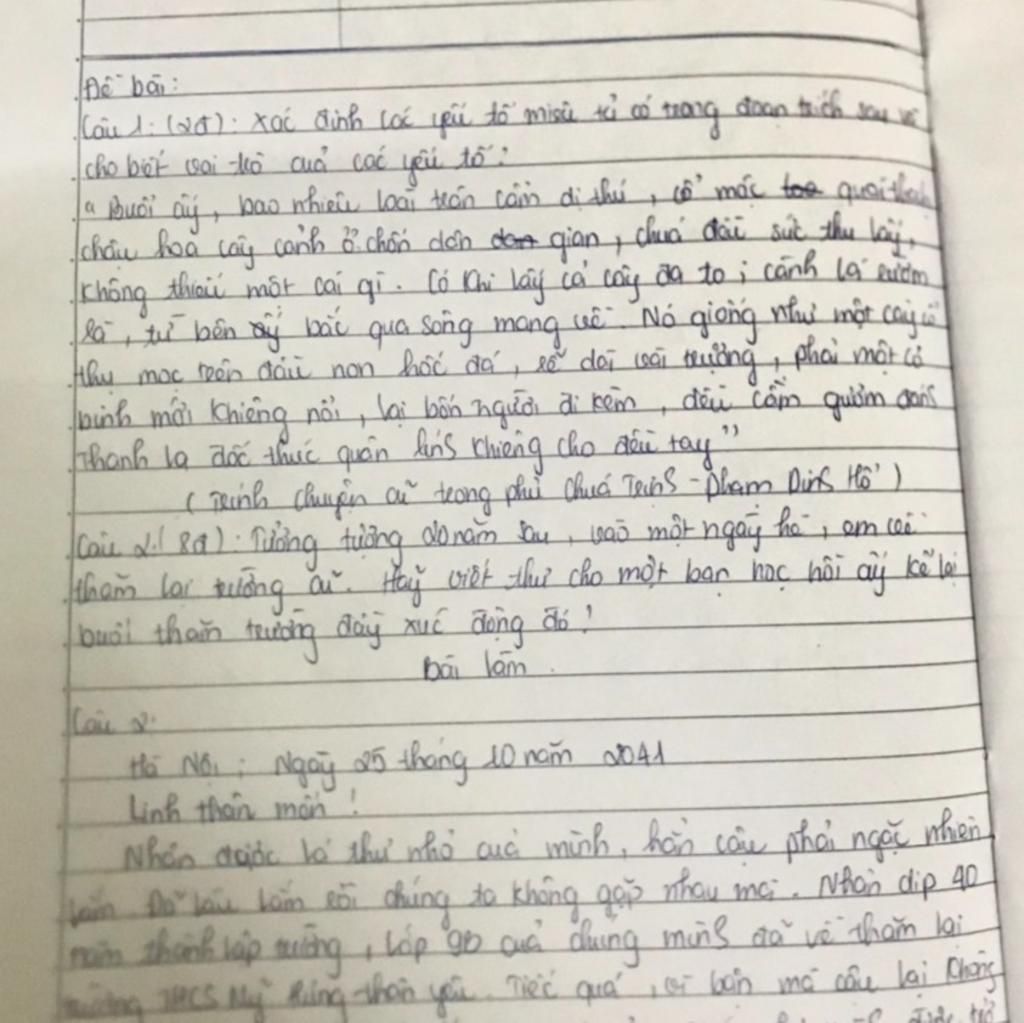 Đề bài:
Câu 1: (2đ): Xác định các yếu tố miêu tả có trong đoan trích sau và
cho biết vai trò cuả các yếu tố!
"Buổi ấy, bao nhiêu loài trân cầm dị thú, cổ mộc quái thạch
chậu hoa cây cảnh ở chốn dân gian, chuá đều sức thu lấy,
không thiếu một cái gì. Có khi lấy cả cây đa to; cành lá rườm
rà, từ bên ấy bắc qua sông mang về. Nó giống như một cây cổ
thụ mọc trên đầu non hốc đá, rễ dài vài trượng, phải một cơ
binh mới khiêng nổi, lại bốn người đi kèm, đều cầm gươm đánh
thanh la đốc thúc quân lính khiêng cho đều tay"
(Trính chuyện cũ trong phủ chuá Trịnh - Phạm Đình Hổ)
Câu 2: (8đ): Tưởng tượng 20 năm sau, vào một ngày hè, em về
thăm lại trường cũ. Hãy viết thư cho một bạn học hồi ấy kể lại
buổi thăm trường đầy xúc động đó!
Bài làm.
Câu 2:
Hà Nội; Ngày 25 tháng 10 năm 2041
Linh thân mến!
Nhận được lá thư nhỏ cuả mình, hẳn cậu phải ngạc nhiên
lắm. Đã lâu lắm rồi chúng ta không gặp nhau mà. Nhân dịp 40
năm thành lập trường, lớp 9D cuả chúng mình đã về thăm lại
trường THCS Mỹ Hưng thân yêu. Tiếc quá, vì bận mà cậu lại không